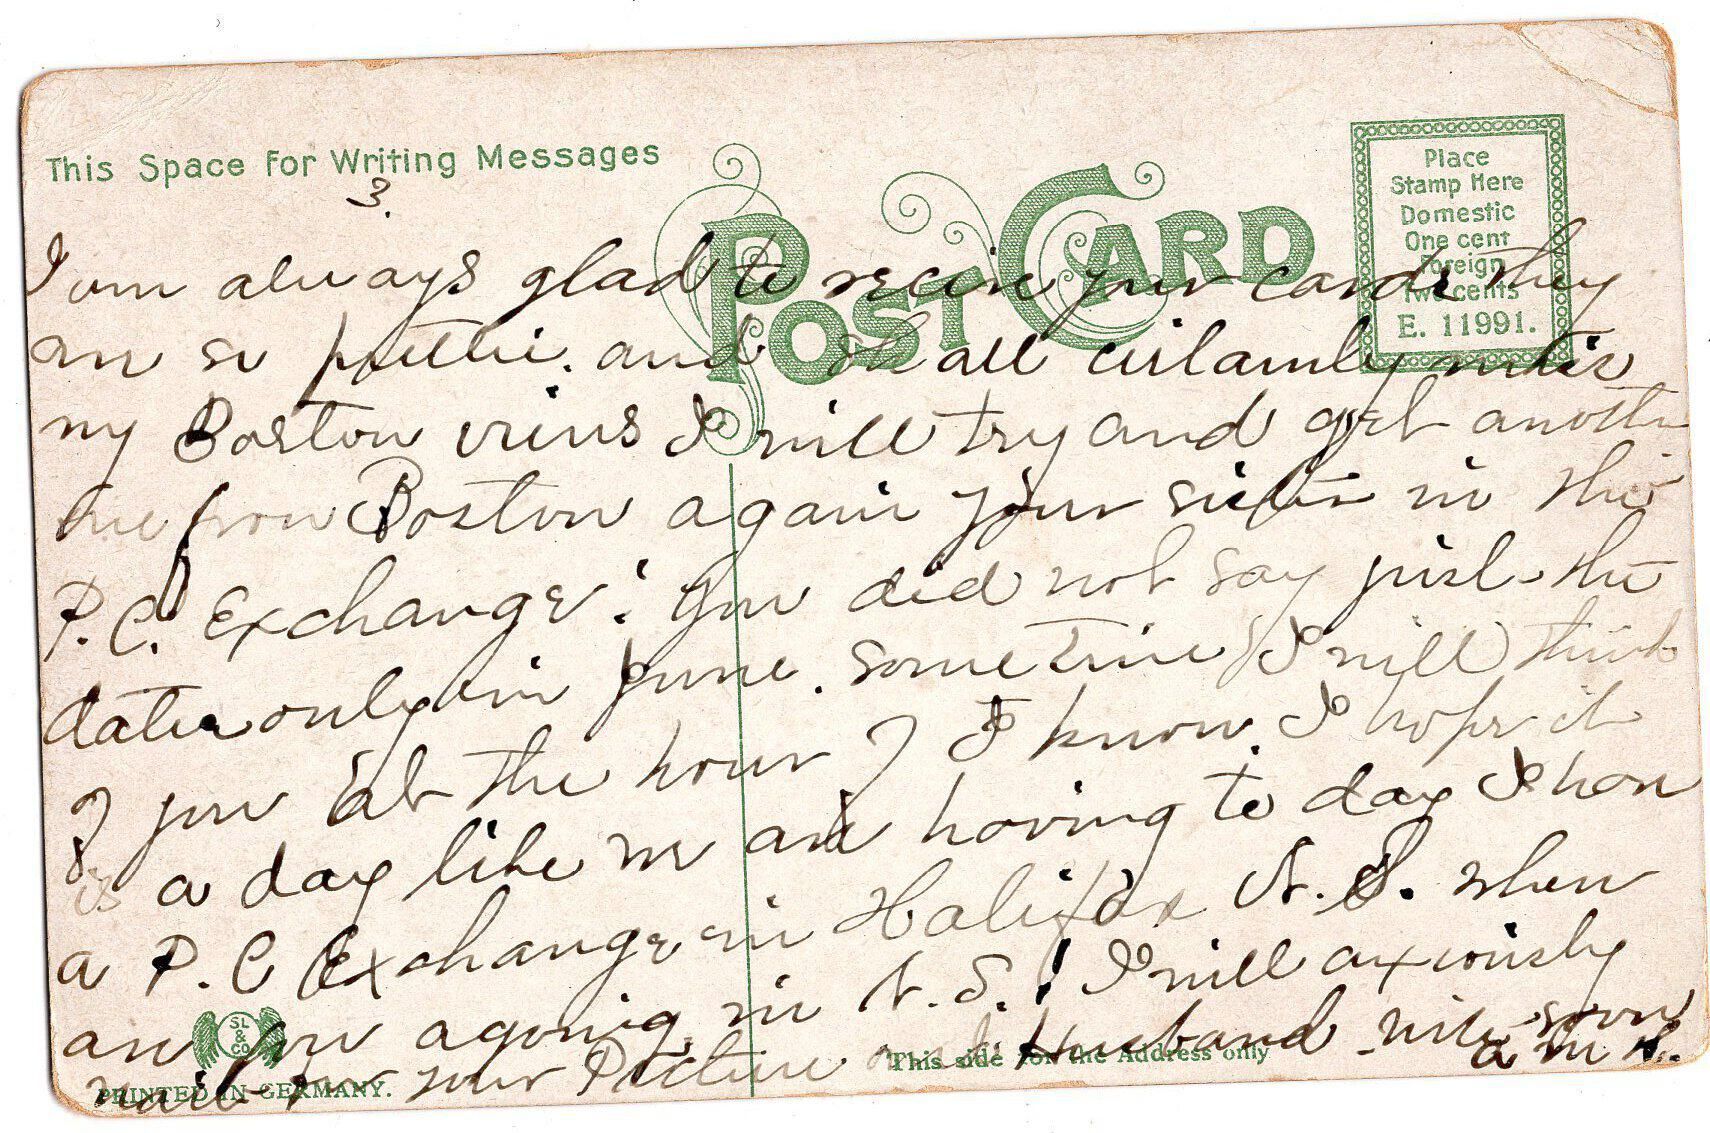 This Space for Writing Messages
POST CARD
Place
Stamp Here
Domestic
One cent
Foreign
Two cents
E. 11991.
3.
I am always glad to receive your cards they
are so prettie. and shall certainly
my Boston views I will try and get another
one from Boston again your sister in this
P.C. Exchange! You did not say just the
date only in June. sometime I will think
of you at the hour I know. I hope it
is a day like we are having to day I have
a P.C Exchange in Halifax N.S. when
are you going in N.S.! I will anxiously
wait for your Picture and Husband
SL
&
CO
PRINTED IN GERMANY.
This side for the Address only